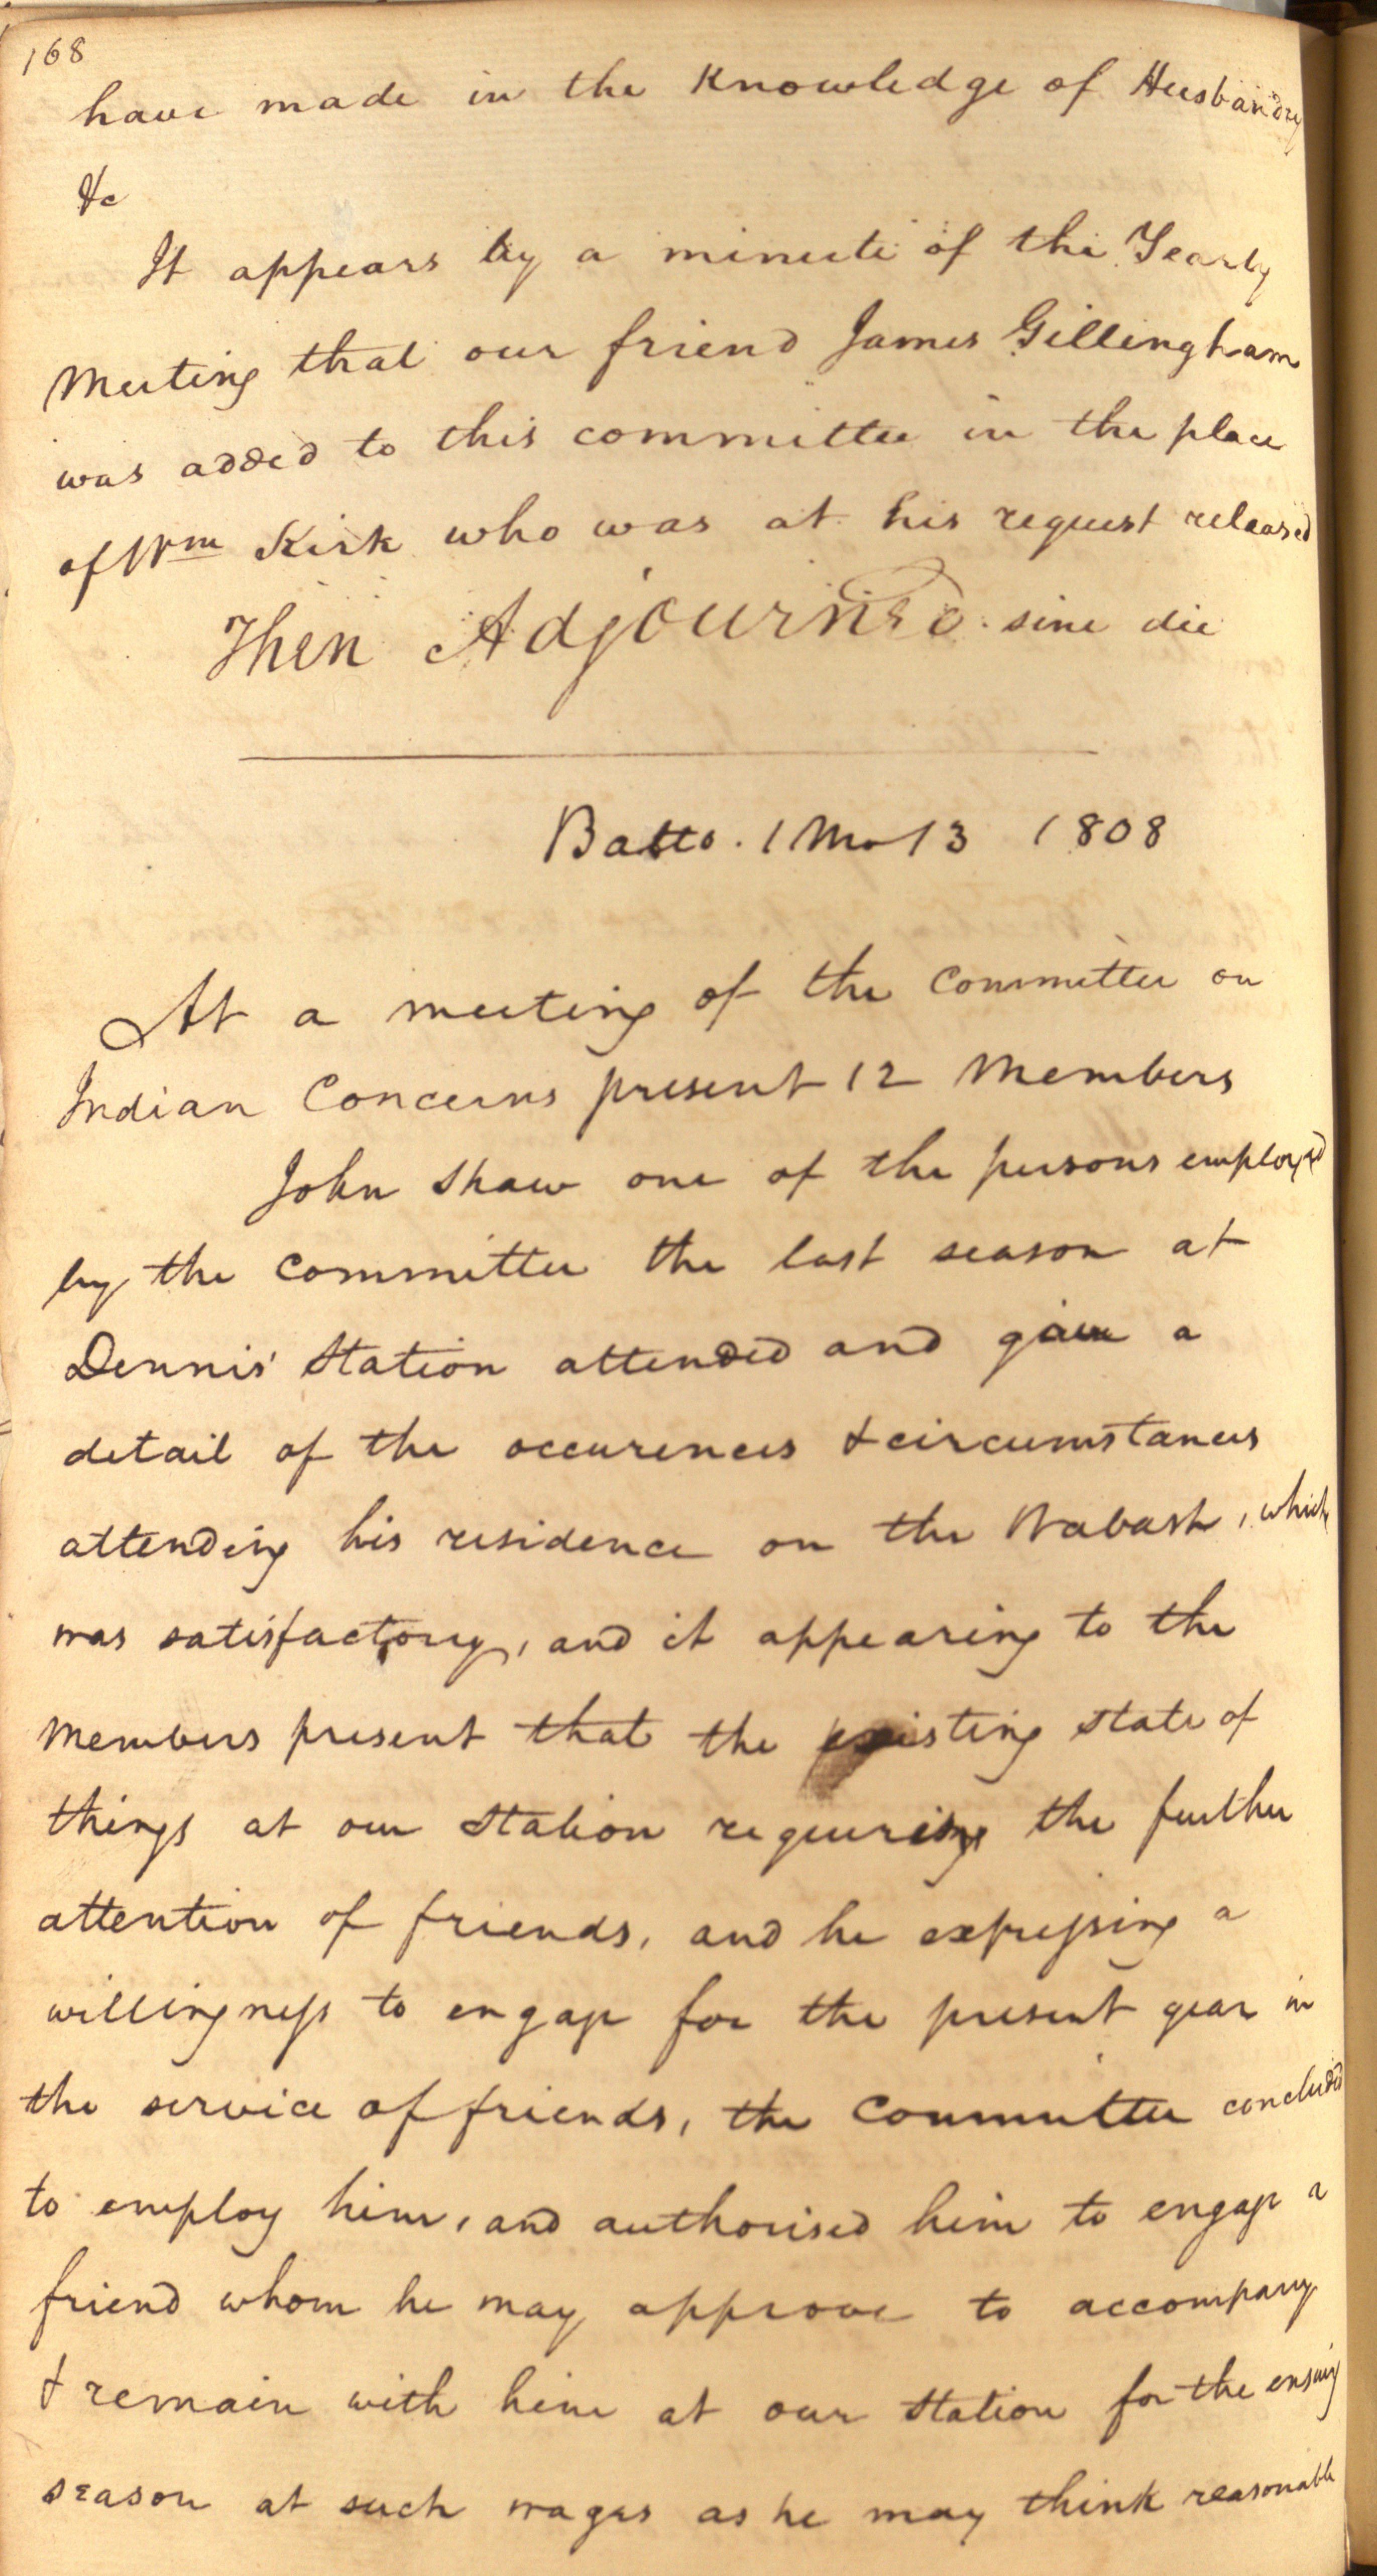 168
have made in the Knowledge of Husbandry
&c
It appears by a minute of the Yearly
Meeting that our friend James Gillingham
was added to this committee in the place
of Wm Kirk who was at his request released
Then Adjourned sine die
Balto. 1 Mo 13 1808
At a meeting of the Committee on
Indian Concerns present 12 Members
John Shaw one of the persons employed
by the Committee the last season at
Dennis' Station attended and gave a
detail of the occurences & circumstances
attending his residence on the Wabash, which
was satisfactory, and it appearing to the
Members present that the existing state of
things at our Station requiring the further
attention of friends, and he expressing a
willingness to engage for the present year in
the service of friends, the Committee concluded
to employ him, and authorised him to engage a
friend whom he may approve to accompany
& remain with him at our Station for the ensuing
season at such wages as he may think reasonable